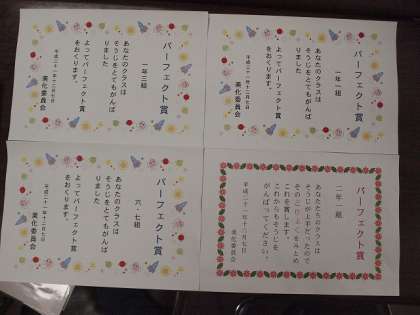 パーフェクト賞
一年三組
あなたのクラスは
そうじをとてもがんば
りました
よってパーフェクト賞
をおくります。
平成二十一年十二月七日
美化委員会
パーフェクト賞
一年一組
あなたのクラスは
そうじをとてもがんば
りました
よってパーフェクト賞
をおくります。
平成二十一年十二月七日
美化委員会
パーフェクト賞
六、七組
あなたのクラスは
そうじをとてもがんば
りました
よってパーフェクト賞
をおくります。
平成二十一年十二月七日
美化委員会
パーフェクト賞
二年一組
あなたたちのクラスは
そうじが上手だったので
そのどりょくをみとめ
これを賞します。
これからもそうじを
がんばってください。
平成二十一年十二月七日
美化委員会